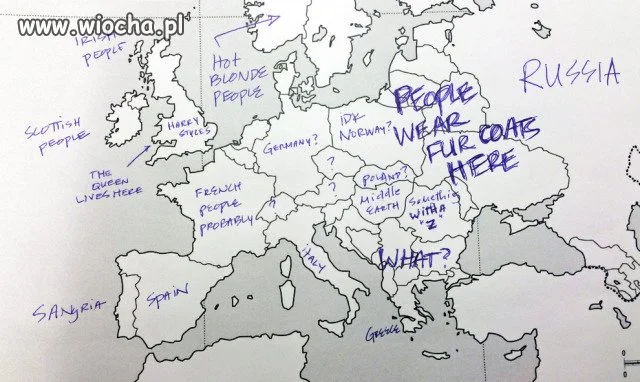 www.wiocha.pl
IRISH
PEOPLE
HOT
BLONDE
PEOPLE
RUSSIA
SCOTTISH
PEOPLE
HARRY
STYLES
THE
QUEEN
LIVES HERE
GERMANY?
IDK
NORWAY?
PEOPLE
WEAR
FUR COATS
HERE
?
POLAND?
?
?
MIDDLE
EARTH
Something
WITH A
"Z"
FRENCH
PEOPLE
PROBABLY
WHAT?
ITALY
SANGRIA
SPAIN
GREECE
0